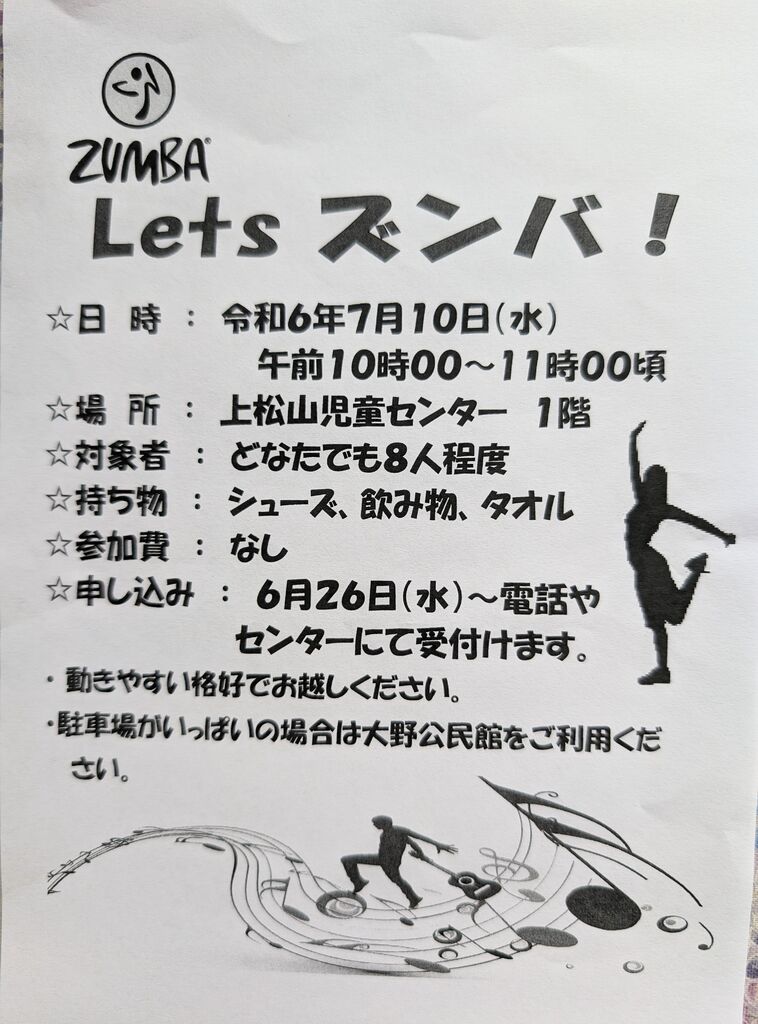 ZUMBA®
Lets ズンバ！
☆日 時 ： 令和6年7月10日(水)
午前10時00～11時00頃
☆場 所 ： 上松山児童センター 1階
☆対象者 ： どなたでも8人程度
☆持ち物 ： シューズ、飲み物、タオル
☆参加費 ： なし
☆申し込み ： 6月26日(水)～電話や
センターにて受付けます。
・動きやすい格好でお越しください。
・駐車場がいっぱいの場合は大野公民館をご利用くだ
さい。